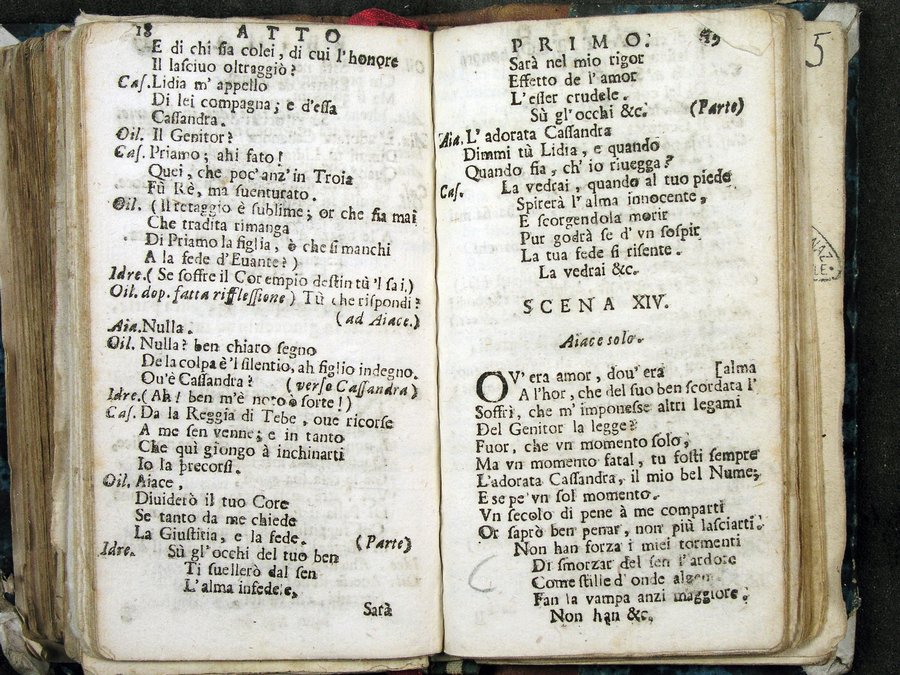 18 ATTO
E di chi sia colei, di cui l'honore
Il lasciuo oltraggiò?
Cas. Lidia m' appello
Di lei compagna; e d'essa
Cassandra.
Oil. Il Genitor?
Cas. Priamo; ahi fato!
Quei, che poc'anz' in Troia
Fù Rè, ma suenturato.
Oil. (Il retaggio è sublime; or che fia mai
Che tradita rimanga
Di Priamo la figlia, ò che si manchi
A la fede d'Euante?)
Idre. (Se soffre il Cor empio destin tù 'l sai.)
Oil. dop. fatta rifflessione) Tù che rispondi?
(ad Aiace.)
Aia. Nulla.
Oil. Nulla? ben chiaro segno
De la colpa è 'l silentio, ah figlio indegno.
Ou'è Cassandra? (verso Cassandra)
Idre. (Ah! ben m'è noto ò sorte!)
Cas. Da la Reggia di Tebe, oue ricorse
A me sen venne; e in tanto
Che quì giongo à inchinarti
Io la precorsi.
Oil. Aiace,
Diuiderò il tuo Core
Se tanto da me chiede
La Giustitia, e la fede. (Parte)
Idre. Sù gl'occhi del tuo ben
Ti suellerò dal sen
L'alma infedele,
Sarà
PRIMO. 19
Sarà nel mio rigor
Effetto de l'amor
L'esser crudele.
Sù gl'occhi &c. (Parte)
Aia. L'adorata Cassandra
Dimmi tù Lidia, e quando
Quando fia, ch'io riuegga?
Cas. La vedrai, quando al tuo piede
Spirerà l'alma innocente,
E scorgendola morir
Pur godrà se d' vn sospir
La tua fede si risente.
La vedrai &c.
SCENA XIV.
Aiace solo.
OV' era amor, dou' era [alma
A l'hor, che del suo ben scordata l'
Soffrì, che m'imponesse altri legami
Del Genitor la legge?
Fuor, che vn momento solo,
Ma vn momento fatal, tu fosti sempre
L'adorata Cassandra, il mio bel Nume;
E se pe' vn sol momento.
Vn secolo di pene à me comparti
Or saprò ben penar, non più lasciarti.
Non han forza i miei tormenti
Di smorzar del sen l'ardore
Come stille d'onde
Fan la vampa anzi maggiore:
Non han &c.
5